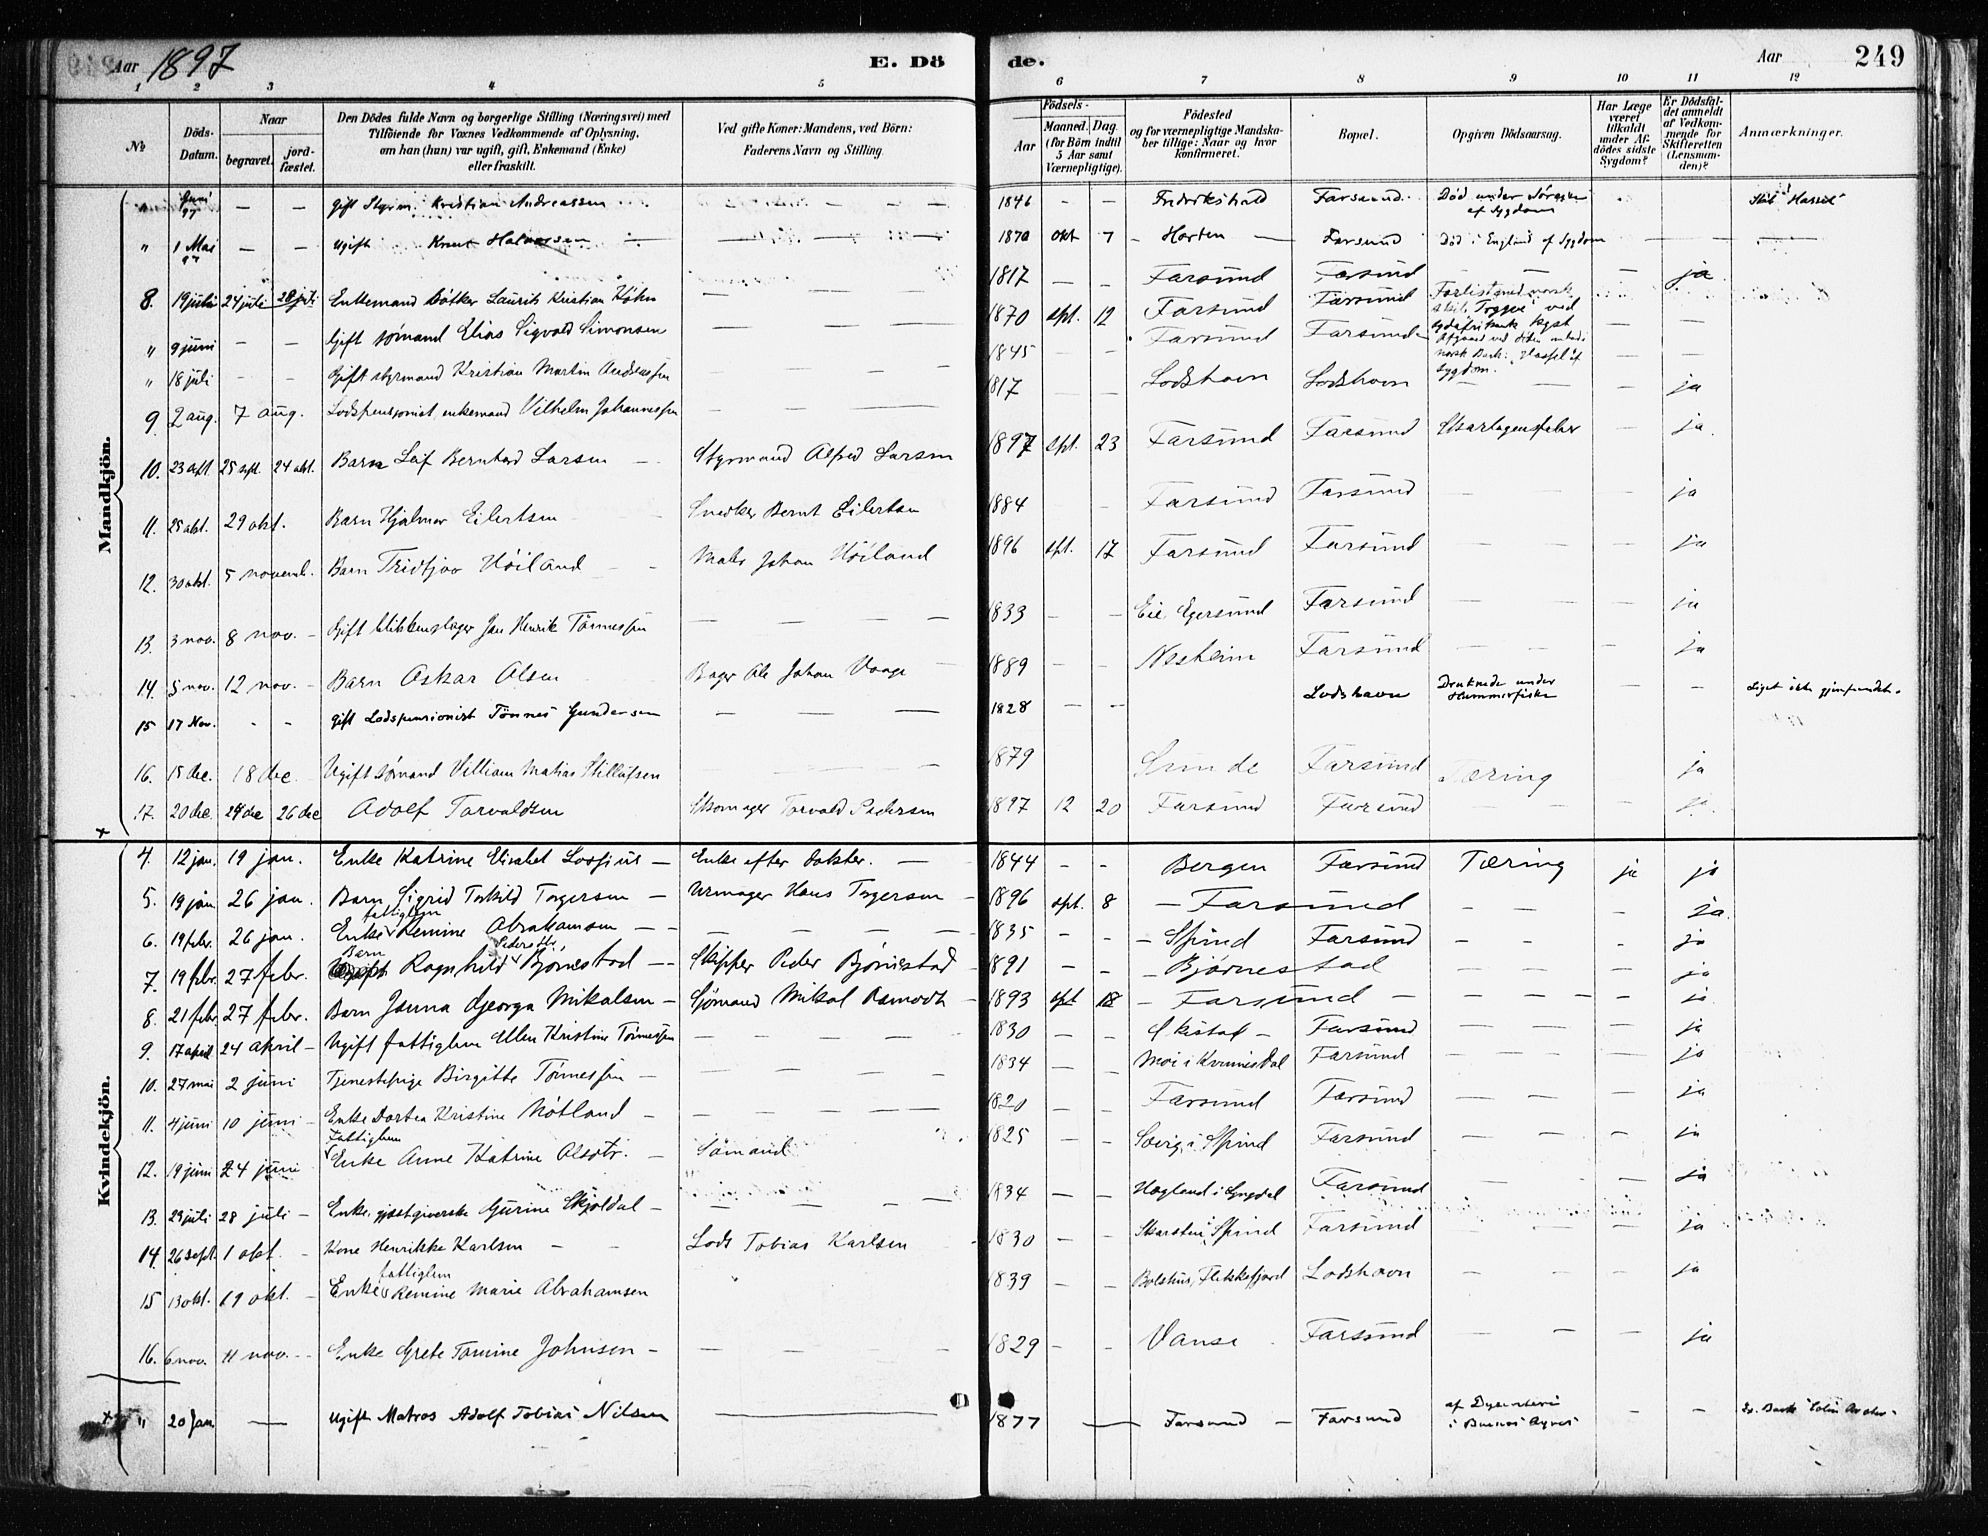 Aar 1897 E. Döde. Aar 249
1 2 3 4 5 6 7 8 9 10 11 12
№ Döds-Datum. Naar begravet. jordfæstet. Den Dödes fulde Navn og borgerlige Stilling (Næringsvei) med Tilföiende for Voxnes Vedkommende af Oplysning, om han (hun) var ugift, gift, Enkemand (Enke) eller fraskilt. Ved gifte Koner: Mandens, ved Börn: Faderens Navn og Stilling. Födsels- Aar Maaned. Dag. (for Börn indtil 5 Aar samt Værnepligtige). Födested og for værnepligtige Mandskaber tillige: Naar og hvor konfirmeret. Bopæl. Opgiven Dödsaarsag. Har Læge været tilkaldt under Afdödes sidste Sygdom? Er Dödsfaldet anmeldt af Vedkommende for Skifteretten (Lensmanden)? Anmærkninger.
Mandkjön.
" Juni 97 — — gift Styrm. Kristian Andreassen — — — 1846 - - Fredrikshald Farsund Død under Sørejsen af Sygdom Skib Hassel
" 1 Mai 97 — — ugift Knut Halvorsen — — — 1870 okt 7 - Horten — Farsund Død i England af Sygdom — — —
8. 19 juli 24 juli 28 juli Enkemand Bøtker Laurits Kristian Køhn — — — 1817 - - Farsund Farsund — — ja
" 9 juni - - Gift sømand Elias Sigvald Simonsen — — — 1870 spt. 12 Farsund Farsund Forlist med norsk skib Trygve ved sydafrikansk kyst — —
" 18 juli - - Gift styrmand Kristian Martin Andreassen — — — 1845 - - Farsund Farsund norsk Bark Hassel af sygdom. — —
9. 2 aug. 7 aug. Lodspensionist, enkemand Vilhelm Johannessen — — — 1817 - - Lodshavn Lodshavn — — - ja
10. 23 spt 25 spt. 24 okt. Barn Leif Bernhard Larsen — Styrmand Alfred Larsen 1897 spt. 23 Farsund Farsund - ja.
11. 25 okt. 29 okt. Barn Hjalmar Eilertsen Snedker Bernt Eilertsen 1884 - - Farsund Farsund - - - ja
12. 30 okt. 5 novemb. Barn Tridtjov Høiland - - Maler Johan Høiland 1896 spt. 17 Farsund Farsund - - - ja
13. 3 nov. 8 nov. - Gift blikkenslager Jan Henrik Tønnessen — — — 1833 - - Eie, Egersund Farsund - - - ja
14. 5 nov. 12 nov. - Barn Oskar Olsen Bager Ole Johan Vaage 1889 - - Nesheim Farsund - - - ja
15 17 Nov. - - gift Lodspensionist Tönnes Gundersen — — — 1828 — — Lodshavn Druknede under Hummerfiske - - Liget ikke gjenfundet.
16. 15 dec. 18 dec - Ugift sømand Villiam Matias — — — 1879 Sunde Farsund Tæring ja
17. 20 dec. 24 dec 26 dec Adolf Torvaldsen Skomager Torvald Pedersen 1897 12 20 Farsund Farsund - - - ja.
Kvindekjön.
4. 12 jan. 19 jan. Enke Katrine Elisabet Lossius — Enke efter dokter. — 1844 - - Bergen Farsund Tæring ja ja
5. 19 jan. 26 jan. Barn Sigrid Torkild Torgersen — Urmager Hans Torgersen - 1896 spt. 8 - Farsund - - - ja.
6. 19 febr. 26 jan. Enke fattiglem Remine Abrahamsen — — — — — 1835 - - - Spind Farsund - - - ja
7. 19 febr. 27 febr. Barn Ragnhild Pedersdtr. Bjørnestad — — Skipper Peder Bjørnestad - 1891 - - - Bjørnestad - - - ja
8. 21 febr. 27 febr. Barn Janna Georga Mikalsen — Sjømand Mikal Asmodt - 1893 spt 18 - Farsund - - - - ja
9. 17 april 24 april - Ugift fattiglem Ellen Kristine Tønnessen — — — 1830 - - - Farsund - - - ja
10. 27 mai 2 juni Tjenestepige Birgitte Tønnessen — — — — 1834 - - Moi i Kvinesdal Farsund - - - ja
11. 4 juni 10 juni - Enke Dortea Kristine Nøtland — — — — 1820 - - Farsund Farsund - - - ja
12. 19 juni 24 juni - Fattiglem Enke Anne Katrine Olsdtr. — Sømand 1825 - - i Spind Farsund - - - ja
13. 23 juli 28 juli - Enke, gjæstgiverske Gurine Skjoldal — — — — 1834 - - Hægland i Lyngdal Farsund - - - ja
14. 26 sept. 1 okt. - Kone Henrikke Karlsen - - Lods Tobias Karlsen - 1830 - - Skarstein, Spind Farsund - - - ja
15 13 okt. 19 okt. - Enke fattiglem Remine Marie Abrahamsen 1839 - - Bolshus, Flekkefjord Lodshavn - - - ja
16. 6 nov. 11 nov. - - Enke Grete Tomine Johnsen — — — — 1829 - - Vanse Farsund - - - ja
+ " 20 Jan. — ugift Matros Adolf Tobias Nilsen — 1877 — Farsund — Farsund af Dysenteri i Buenos Ayres - - Bark "Colin Archer"